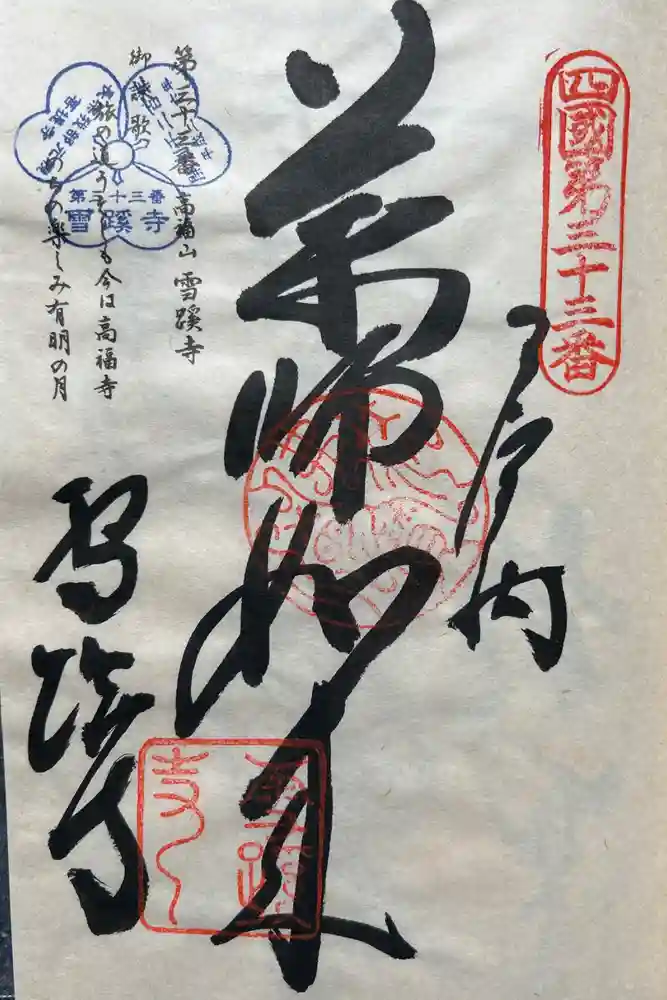 四國第三十三番
奉納
薬師如来
雪蹊寺
第三十三番 高福山 雪蹊寺
御詠歌
旅の道うえしも今は高福寺
のちの楽しみ有明の月
第三十三番
雪蹊寺
雪蹊
寺